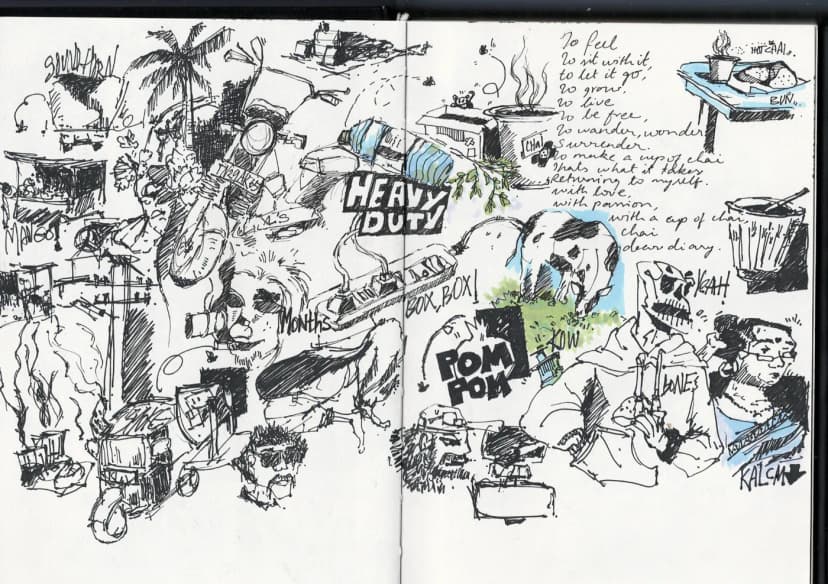 MANGO!
MONTHS
HEAVY
DUTY
BOX, BOX!
POM
POM
CHAI
To feel
To sit with it,
to let it go,
To grow.
To live
To be free
To wander, wonder
Surrender.
To make a cup of chai
thats what it takes
Returning to myself.
with love,
with passion,
with a cup of chai
chai
dear diary.
HOT CHAI.
BUN
KOW
GAH!
BONES
KALCM